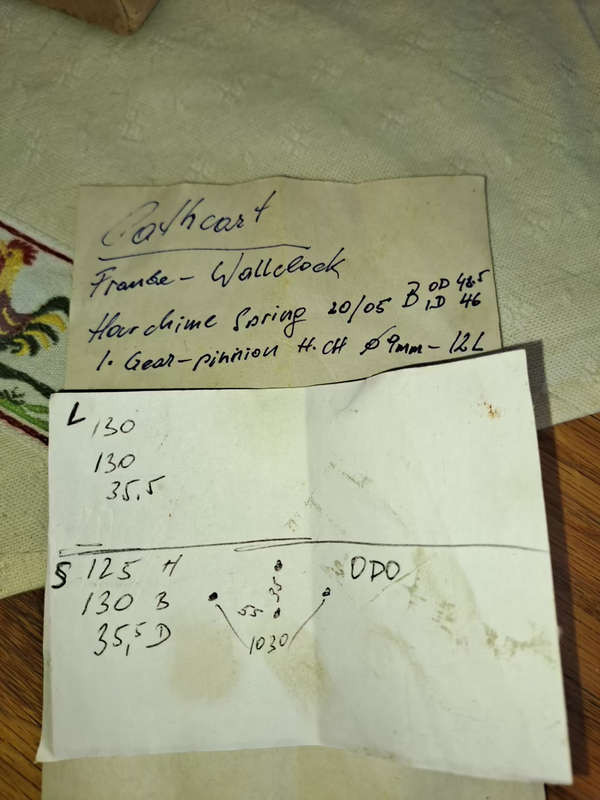 Cathcart
Franke - Wallclock
Hourchime Spring 20/05 B OD 48.5
ID 46
1. Gear-pinnion H.CH ø 9mm - 12L
L
130
130
35,5
S 125 H
130 B
35,5 D
35
55
1030
ODO